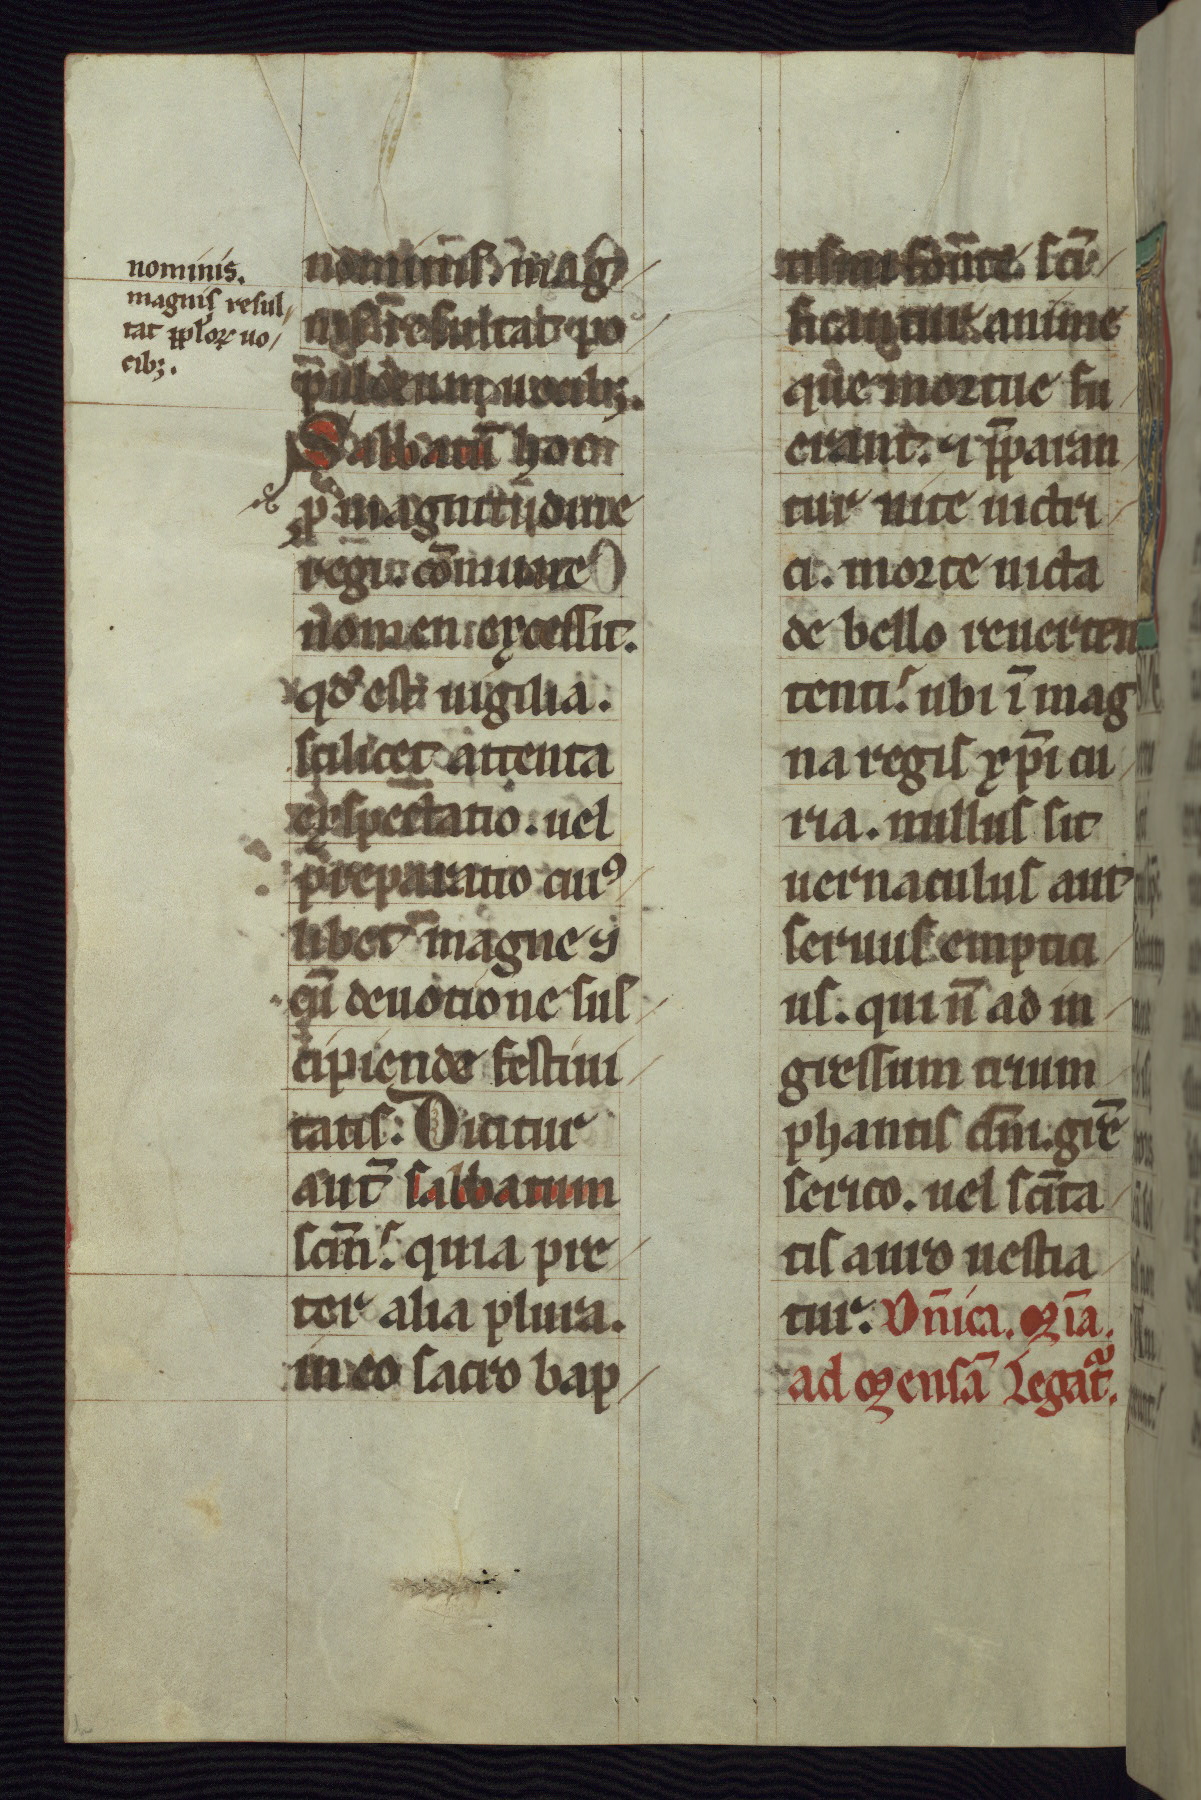 nominis.
magnis resul
tat pplōꝝ uo
cibꝫ.
nominis. mag
nis resultat po
pulorum uocibꝫ.
Sabbatū hoc in
p̱ magnitudine
regū cōmune
nomen excessit.
qd̓ est uigilia.
scilicet attenta
exspectatio. uel
preparatio cuiꝰ
libet magne ⁊
cū deuotione sus
cipiende festiui
tatis. Dicitur
aut̄ sabbatum
scm̄. quia pre
ter alia plura.
in eo sacro bap
tismi fonte. sc̄i
ficantur anime
que mortue fu
erant. ⁊ pp̄aran
tur uite uictri
ci. morte uicta
de bello reuerten
tenti. ubi ī mag
na regis xp̄i cu
ria. nullus sit
uernaculus aut
seruus emptici
us. qui n̄ ad in
gressum trium
phantis dn̄i. ḡre
serico. uel scīta
tis auro uestia
tur. Vn̄ica. gīa.
ad mensā Legat᷑.